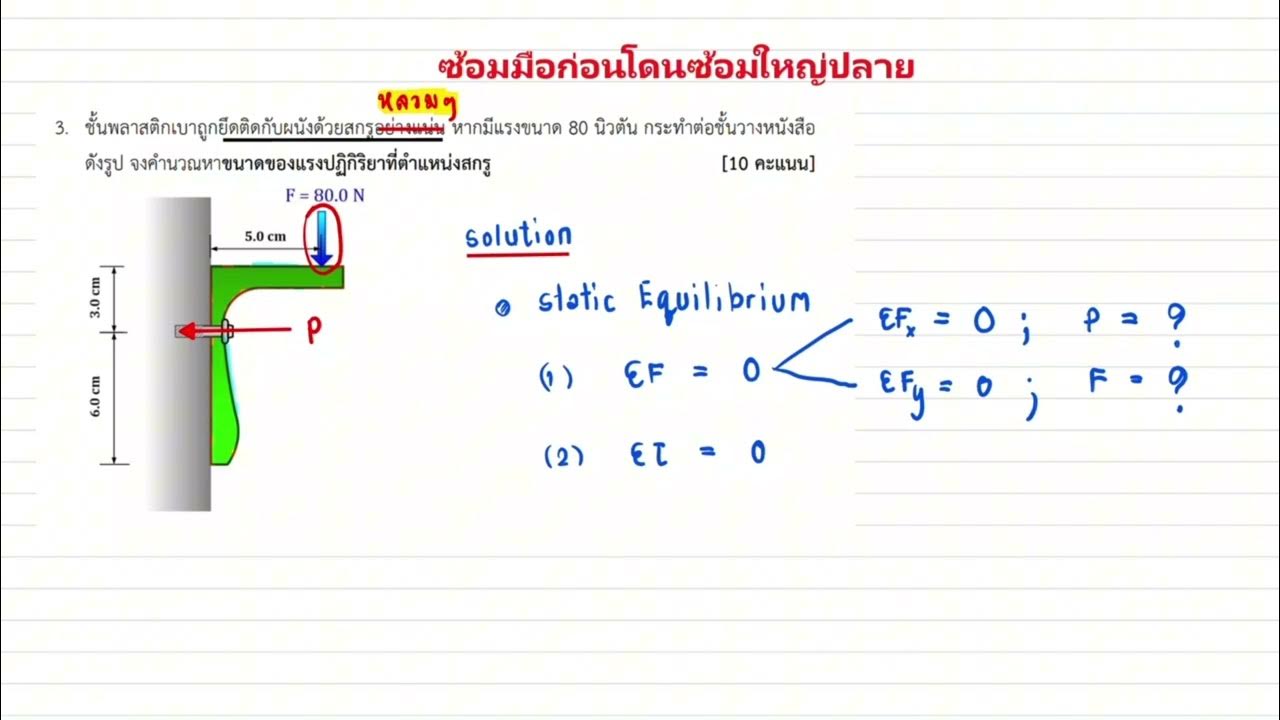 ซ้อมมือก่อนโดนซ้อมใหญ่ปลาย
หลวมๆ
3. ชั้นพลาสติกเบาถูกยึดติดกับผนังด้วยสกรูอย่างแน่น หากมีแรงขนาด 80 นิวตัน กระทำต่อชั้นวางหนังสือ
ดังรูป จงคำนวณหาขนาดของแรงปฏิกิริยาที่ตำแหน่งสกรู [10 คะแนน]
F = 80.0 N
5.0 cm
3.0 cm
P
6.0 cm
solution
static Equilibrium
(1) ΣF = 0
ΣFx = 0 ; P = ?
ΣFy = 0 ; F = ?
(2) Στ = 0